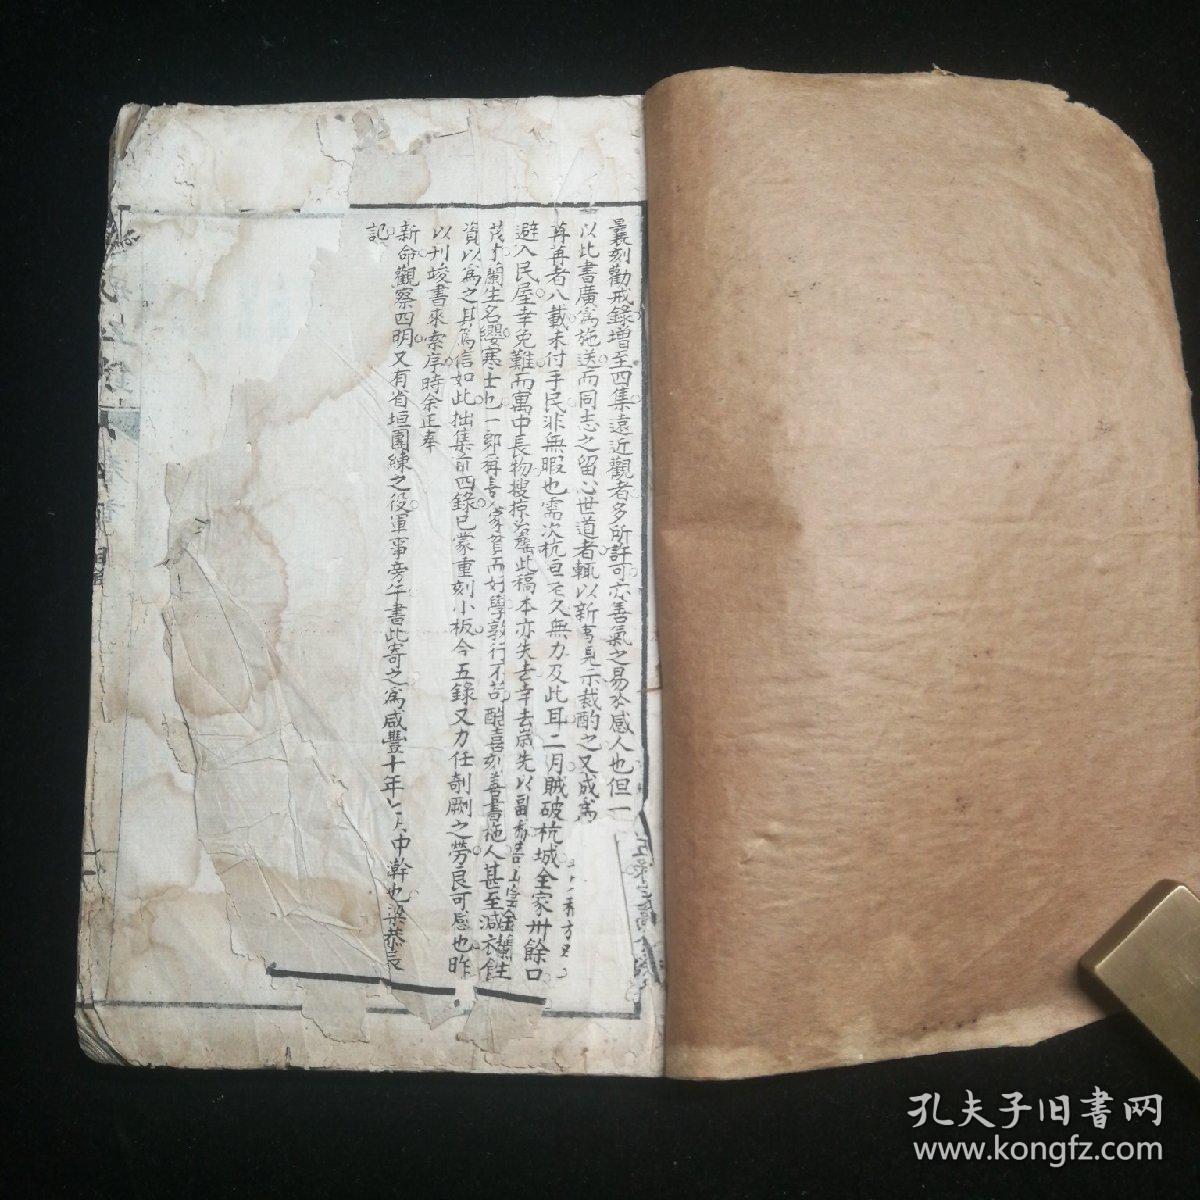 曩刻勸戒錄增至四集遠近觀者多所許可亦善氣之易於感人也但一
以此書廣為施送而同志之留心世道者輒以新事見示裁酌之又成為
苒苒者八載未付手民非無暇也需次杭垣至久無力及此耳二月賊破杭城全家卅餘口
避入民屋幸免難而寓中長物搜掠殆罄此稿本亦失去幸去歲先以副
茂才蘭生名纓寒士也一鄉稱善家貧而好學敦行不苟酷喜刻善書施人甚至減衣食
資以為之其篤信如此拙集前四錄已蒙重刻小板今五錄又力任剞劂之勞良可感也昨
以刊竣書來索序時余正奉
新命觀察四明又有省垣團練之役軍事旁午書此寄之為咸豐十年 月中澣也梁恭辰
記
孔夫子旧书网
www.kongfz.com